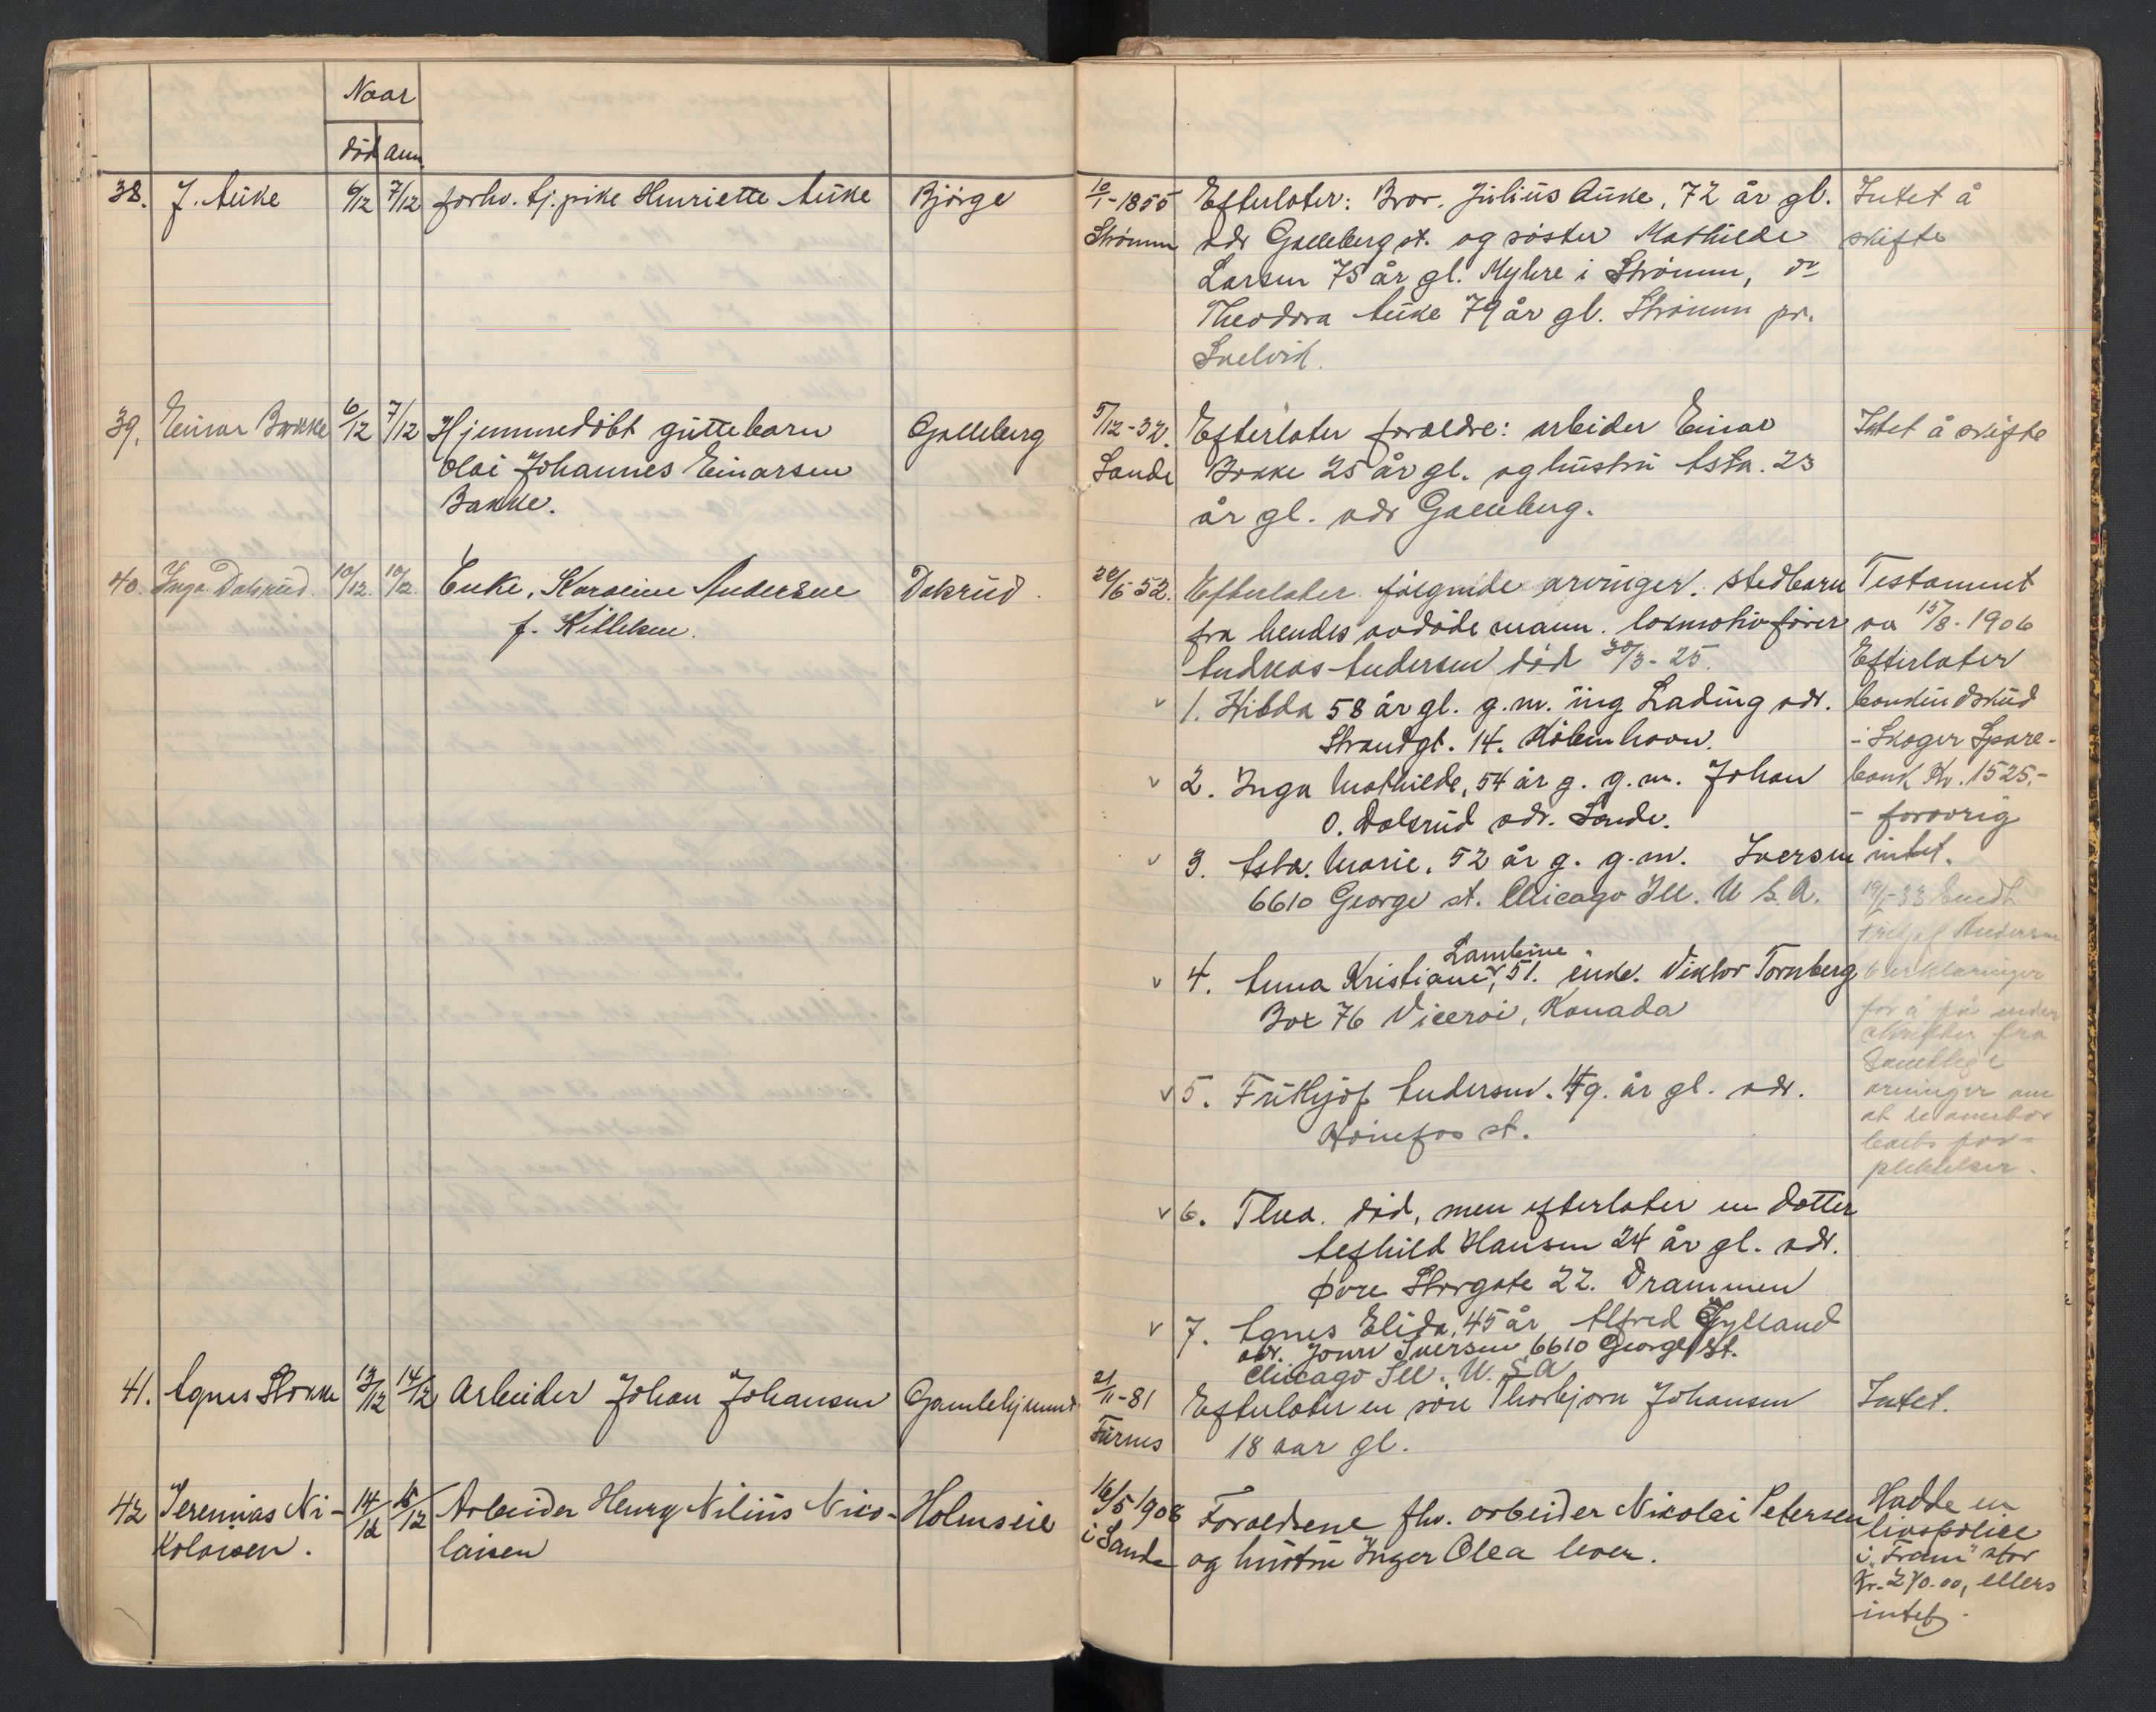 Naar
död anm.
38. J. Auke 6/12 7/12 forhv. tj. pike Henriette Auke Bjørge 10/1-1855 Strömm
Efterlater: Bror. Julius Auke, 72 år gl.
adr Galleberg st. og söster Mathilde
Larsen 75 år gl. Myhre i Strömm, do
Theodora Auke 79 år gl. Strömm pr.
Svelvik.
Intet å
skifte
39. Einar Bakke 6/12 7/12 Hjemmedöbt guttebarn Galleberg 5/12-32. Sande
Olai Johannes Einarsen
Bakke.
Efterlater foraeldre: arbeider Einar
Bakke 25 år gl. og hustru Asta. 23
år gl. adr Galleberg.
Intet å skifte
40. Inga Dalsrud. 10/12. 10/12. Enke, Karoline Andersen Dalsrud. 52.
f. Killeksen.
Efterlater følgende arvinger. Stedbarn
fra hendes avdöde mann. lokmotivförer
Andreas Andersen död 30/3-25.
v 1. Hilda 58 år gl. g.m. ing Lading adr.
Strandgt. 14. Köbenhavn.
v 2. Inga Mathilde, 54 år g. g.m. Johan
O. Dalsrud adr. Sande.
v 3. Asta. Marie. 52 år g. g.m. Iversen
6610 George st. Chicago Ill. U.S.A.
v 4. Anna Kristiane, Lambine 51. enke. Viktor Tornberg
Box 76 Viceroi, Kanada
v 5. Frithjof Andersen. 49. år gl. adr.
Hönefos st.
v 6. Thea. död, men efterlater en datter
Aefhild Hansen 24 år gl. adr.
Övre Storgate 22. Drammen
v 7. Agnes Elida, 45 år Alfred Gylland
adr. John Iversen 6610 George st.
Chicago Ill. U.S.A
Testament
av 15/8-1906
Efterlater
bankindskud
i Skoger Spare-
bank Kr. 1525.-
- forovrig
intet.
19/1-33 Sendt
Frithjof Andersen
6 erklæringer
for å få under
skrifter fra
samtlige
arvinger om
at de overtar
boets for-
pliktelser.
41. Agnes Stokke 13/12 14/12 Arbeider Johan Johansen Gamlehjemmet 21/11-81 Furnes
Efterlater en sön Thorbjørn Johansen
18 aar gl.
Intet.
42 Jeremias Ni- 14/12 15/12 Arbeider Henry Nilius Nico- Holmseie 16/5 1908 i Sande
kolaisen. laisen
Foraeldrene fhv. arbeider Nikolai Petersen
og hustru Inger Olea lever.
Hadde en
livspolice
i "Fram" stor
Kr. 270.00, ellers
intet.